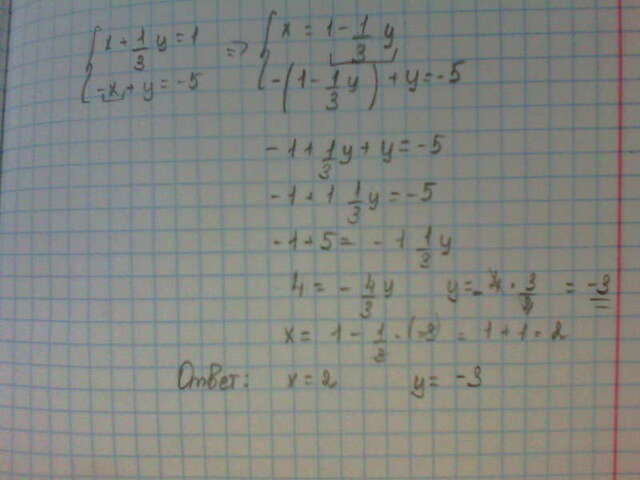 x + 1/3 y = 1 => x = 1 - 1/3 y
-x + y = -5 -(1 - 1/3 y) + y = -5
-1 + 1/3 y + y = -5
-1 + 1 1/3 y = -5
-1 + 5 = -1 1/3 y
4 = -4/3 y y = -4 · 3/4 = -3
x = 1 - 1/3 · (-3) = 1 + 1 = 2
Ответ: x = 2 y = -3